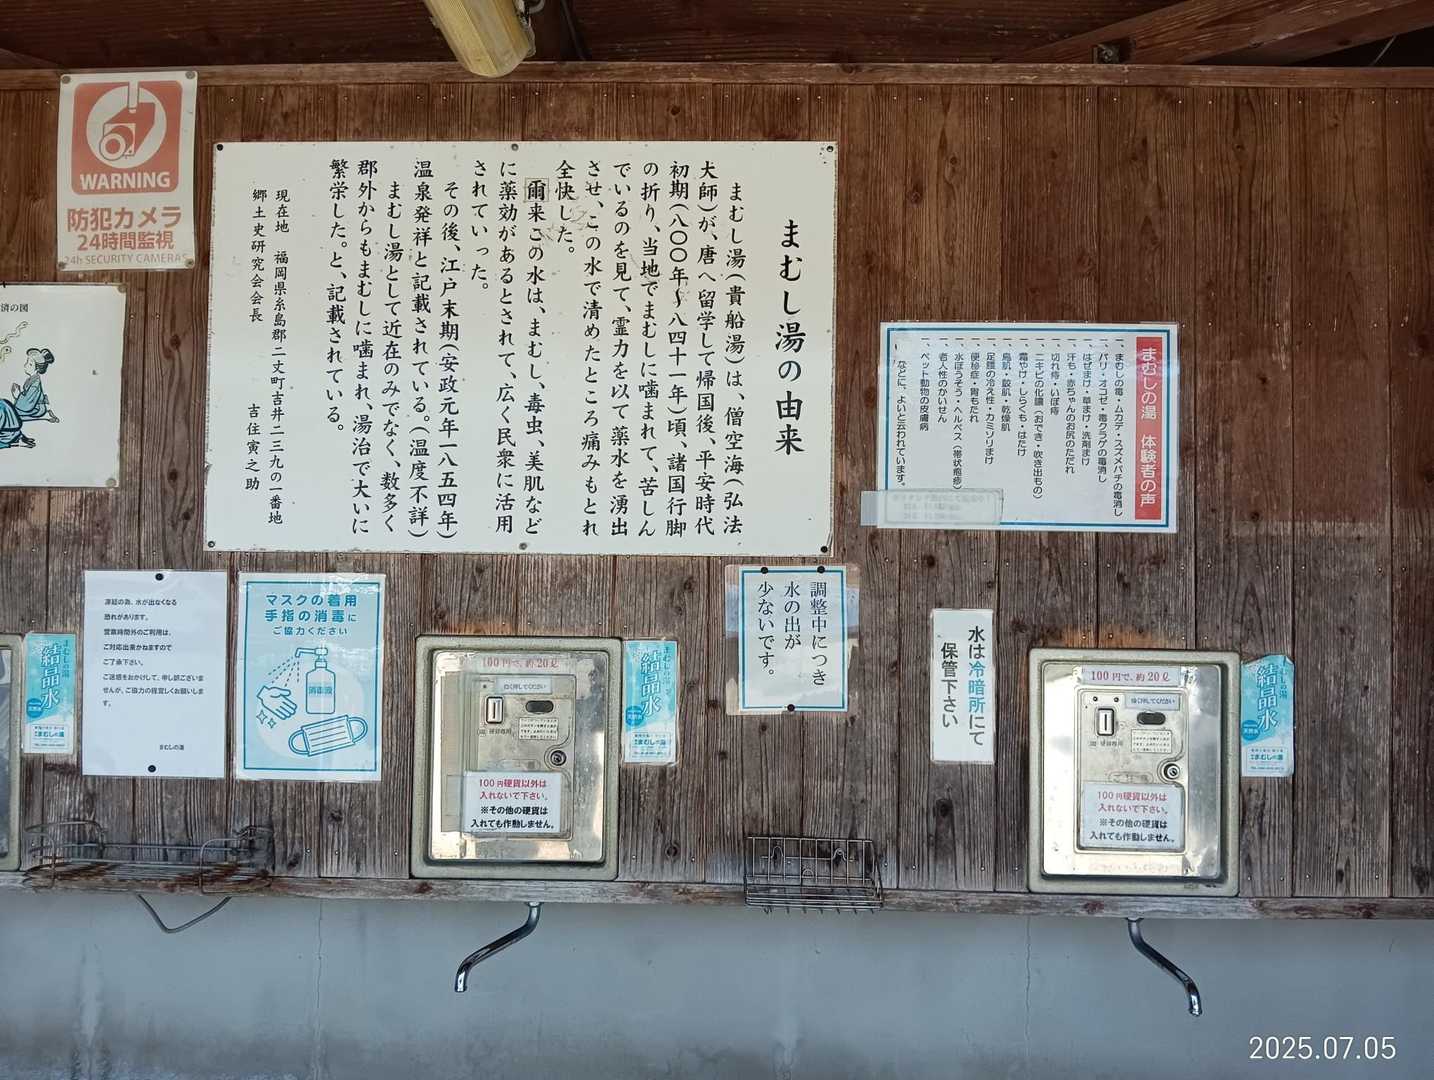 WARNING
防犯カメラ
24時間監視
24h SECURITY CAMERAS
済の図
まむし湯の由来
まむし湯(貴船湯)は、僧空海(弘法
大師)が、唐へ留学して帰国後、平安時代
初期(八〇〇年〜八四十一年)頃、諸国行脚
の折り、当地でまむしに噛まれて、苦しん
でいるのを見て、霊力を以て薬水を湧出
させ、この水で清めたところ痛みもとれ
全快した。
爾来この水は、まむし、毒虫、美肌など
に薬効があるとされて、広く民衆に活用
されていった。
その後、江戸末期(安政元年一八五四年)
温泉発祥と記載されている。(温度不詳)
まむし湯として近在のみでなく、数多く
郡外からもまむしに噛まれ、湯治で大いに
繁栄した。と、記載されている。
現在地 福岡県糸島郡二丈町吉井二三九の一番地
郷土史研究会会長 吉住寅之助
まむしの湯 体験者の声
一、まむしの毒・ムカデ・スズメバチの毒消し
一、バリ・オコゼ・毒クラゲの毒消し
一、はぜまけ・草まけ・洗剤まけ
一、汗も・赤ちゃんのお尻のただれ
一、切れ痔・いぼ痔
一、ニキビの化膿(おでき・吹き出もの)
一、霜やけ・しらくも・はたけ
一、鳥肌・鮫肌・乾燥肌
一、足腰の冷え性・カミソリまけ
一、便秘症・胃もたれ
一、水ぼうそう・ヘルペス(帯状疱疹)
一、老人性のかいせん
一、ペット動物の皮膚病
などに、よいと云われています。
凍結の為、水が出なくなる
恐れがあります。
営業時間外のご利用は、
ご対応出来かねますので
ご了承下さい。
ご迷惑をおかけして、申し訳ございま
せんが、ご協力の程宜しくお願いしま
す。
まむしの湯
マスクの着用
手指の消毒に
ご協力ください
消毒液
調整中につき
水の出が
少ないです。
水は冷暗所にて
保管下さい
まむしの湯
結晶水
天然水
まむしの湯
100円で、約20ℓ
強く押してください
100円硬貨以外は
入れないで下さい。
※その他の硬貨は
入れても作動しません。
まむしの湯
結晶水
天然水
まむしの湯
100円で、約20ℓ
強く押してください
100円硬貨以外は
入れないで下さい。
※その他の硬貨は
入れても作動しません。
まむしの湯
結晶水
天然水
まむしの湯
2025.07.05